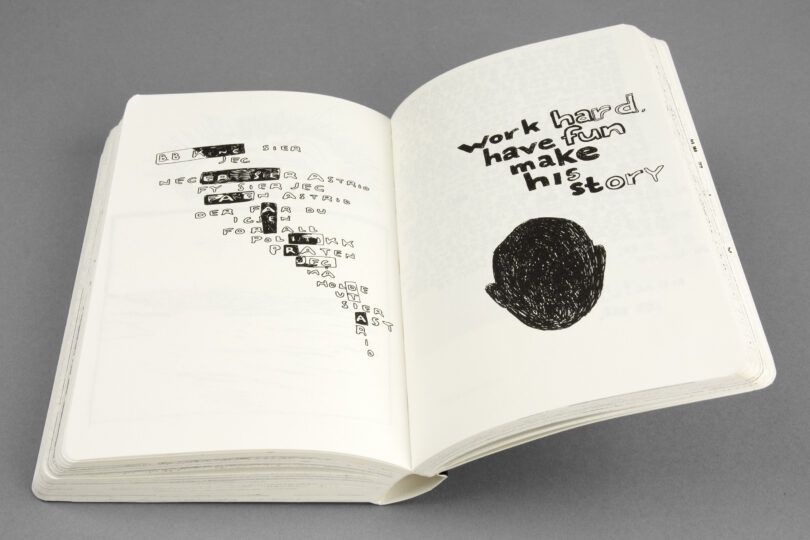 BB KING SIER
JEG
NEGER SIER ASTRID
FY SIER JEG
FAEN ASTRID
DER FÅR DU
IGJEN
FOR ALL
POLITIKK
PRATEN
JEG
MÅ
HOLDE
UT
SIER
AST
R
I
D
work hard.
have fun
make
his
story